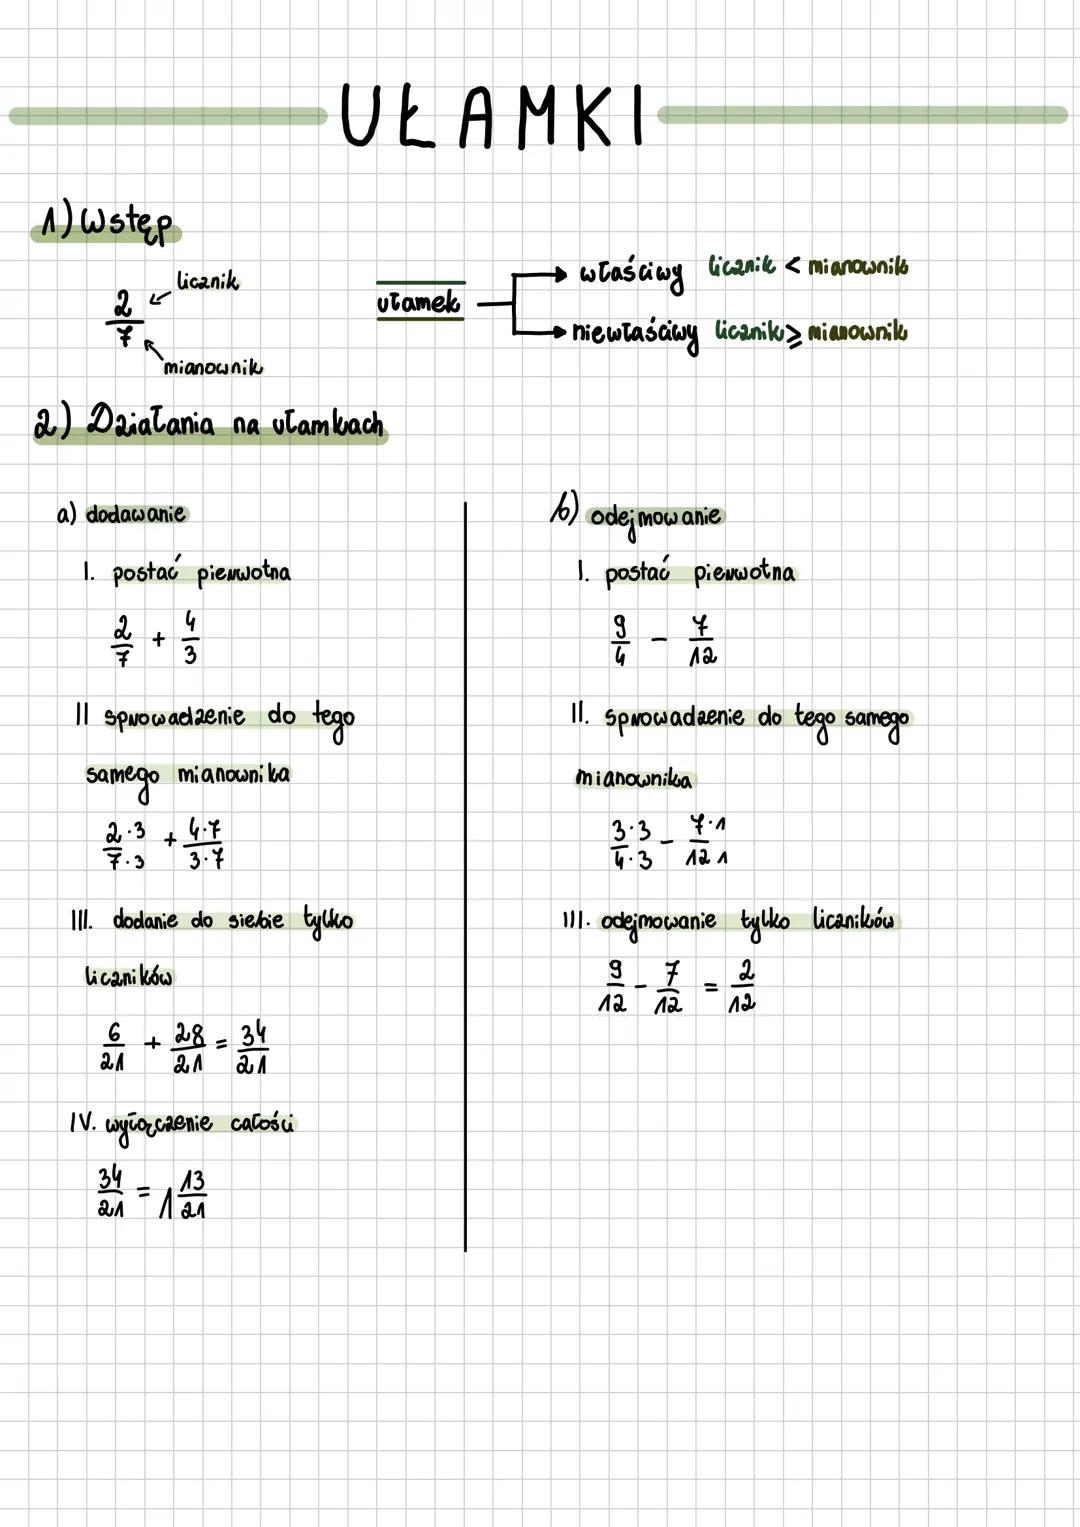 UŁAMKI
1) Wstęp
2/7
licznik
mianownik
ułamek
właściwy licznik < mianownik
niewłaściwy licznik ≥ mianownik
2) Działania na ułamkach
a) dodawanie
I. postać pierwotna
2/7 + 4/3
II sprowadzenie do tego
samego mianownika
2·3/7·3 + 4·7/3·7
III. dodanie do siebie tylko
liczników
6/21 + 28/21 = 34/21
IV. wyłączenie całości
34/21 = 1 13/21
b) odejmowanie
I. postać pierwotna
9/4 - 7/12
II. sprowadzenie do tego samego
mianownika
3·3/4·3 - 7·1/12 1
III. odejmowanie tylko liczników
9/12 - 7/12 = 2/12